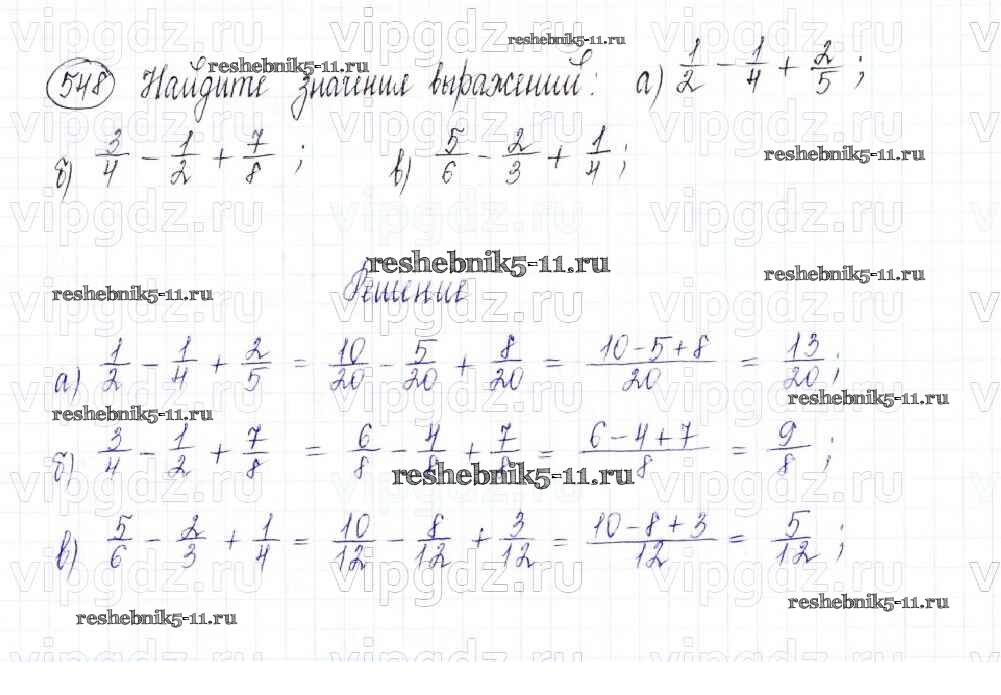 reshebnik5-11.ru
548 Найдите значения выражений: а) 1/2 − 1/4 + 2/5 ;
reshebnik5-11.ru
б) 3/4 − 1/2 + 7/8 ; в) 5/6 − 2/3 + 1/4 ;
reshebnik5-11.ru
vipgdz.ru vipgdz.ru vipgdz.ru
reshebnik5-11.ru
reshebnik5-11.ru
reshebnik5-11.ru
Решение
vipgdz.ru vipgdz.ru vipgdz.ru
а) 1/2 − 1/4 + 2/5 = 10/20 − 5/20 + 8/20 = (10 − 5 + 8)/20 = 13/20 ;
reshebnik5-11.ru
reshebnik5-11.ru
б) 3/4 − 1/2 + 7/8 = 6/8 − 4/8 + 7/8 = (6 − 4 + 7)/8 = 9/8 ;
reshebnik5-11.ru
в) 5/6 − 2/3 + 1/4 = 10/12 − 8/12 + 3/12 = (10 − 8 + 3)/12 = 5/12 ;
reshebnik5-11.ru
reshebnik5-11.ru